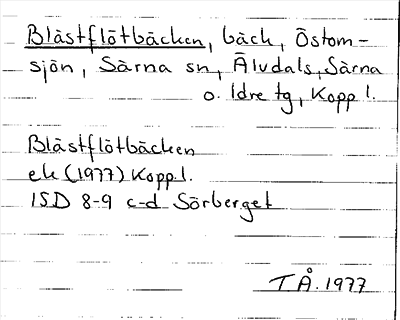 Blästflötbäcken, bäck, Östom-
sjön, Särna sn, Älvdals, Särna
o. Idre tg, Kopp l.
Blästflötbäcken
ek (1977) Kopp. l.
15D 8-9 c-d Sörberget
TÅ. 1977